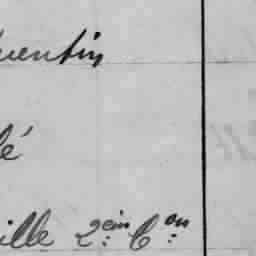 uentin
lé
ille 2em Con